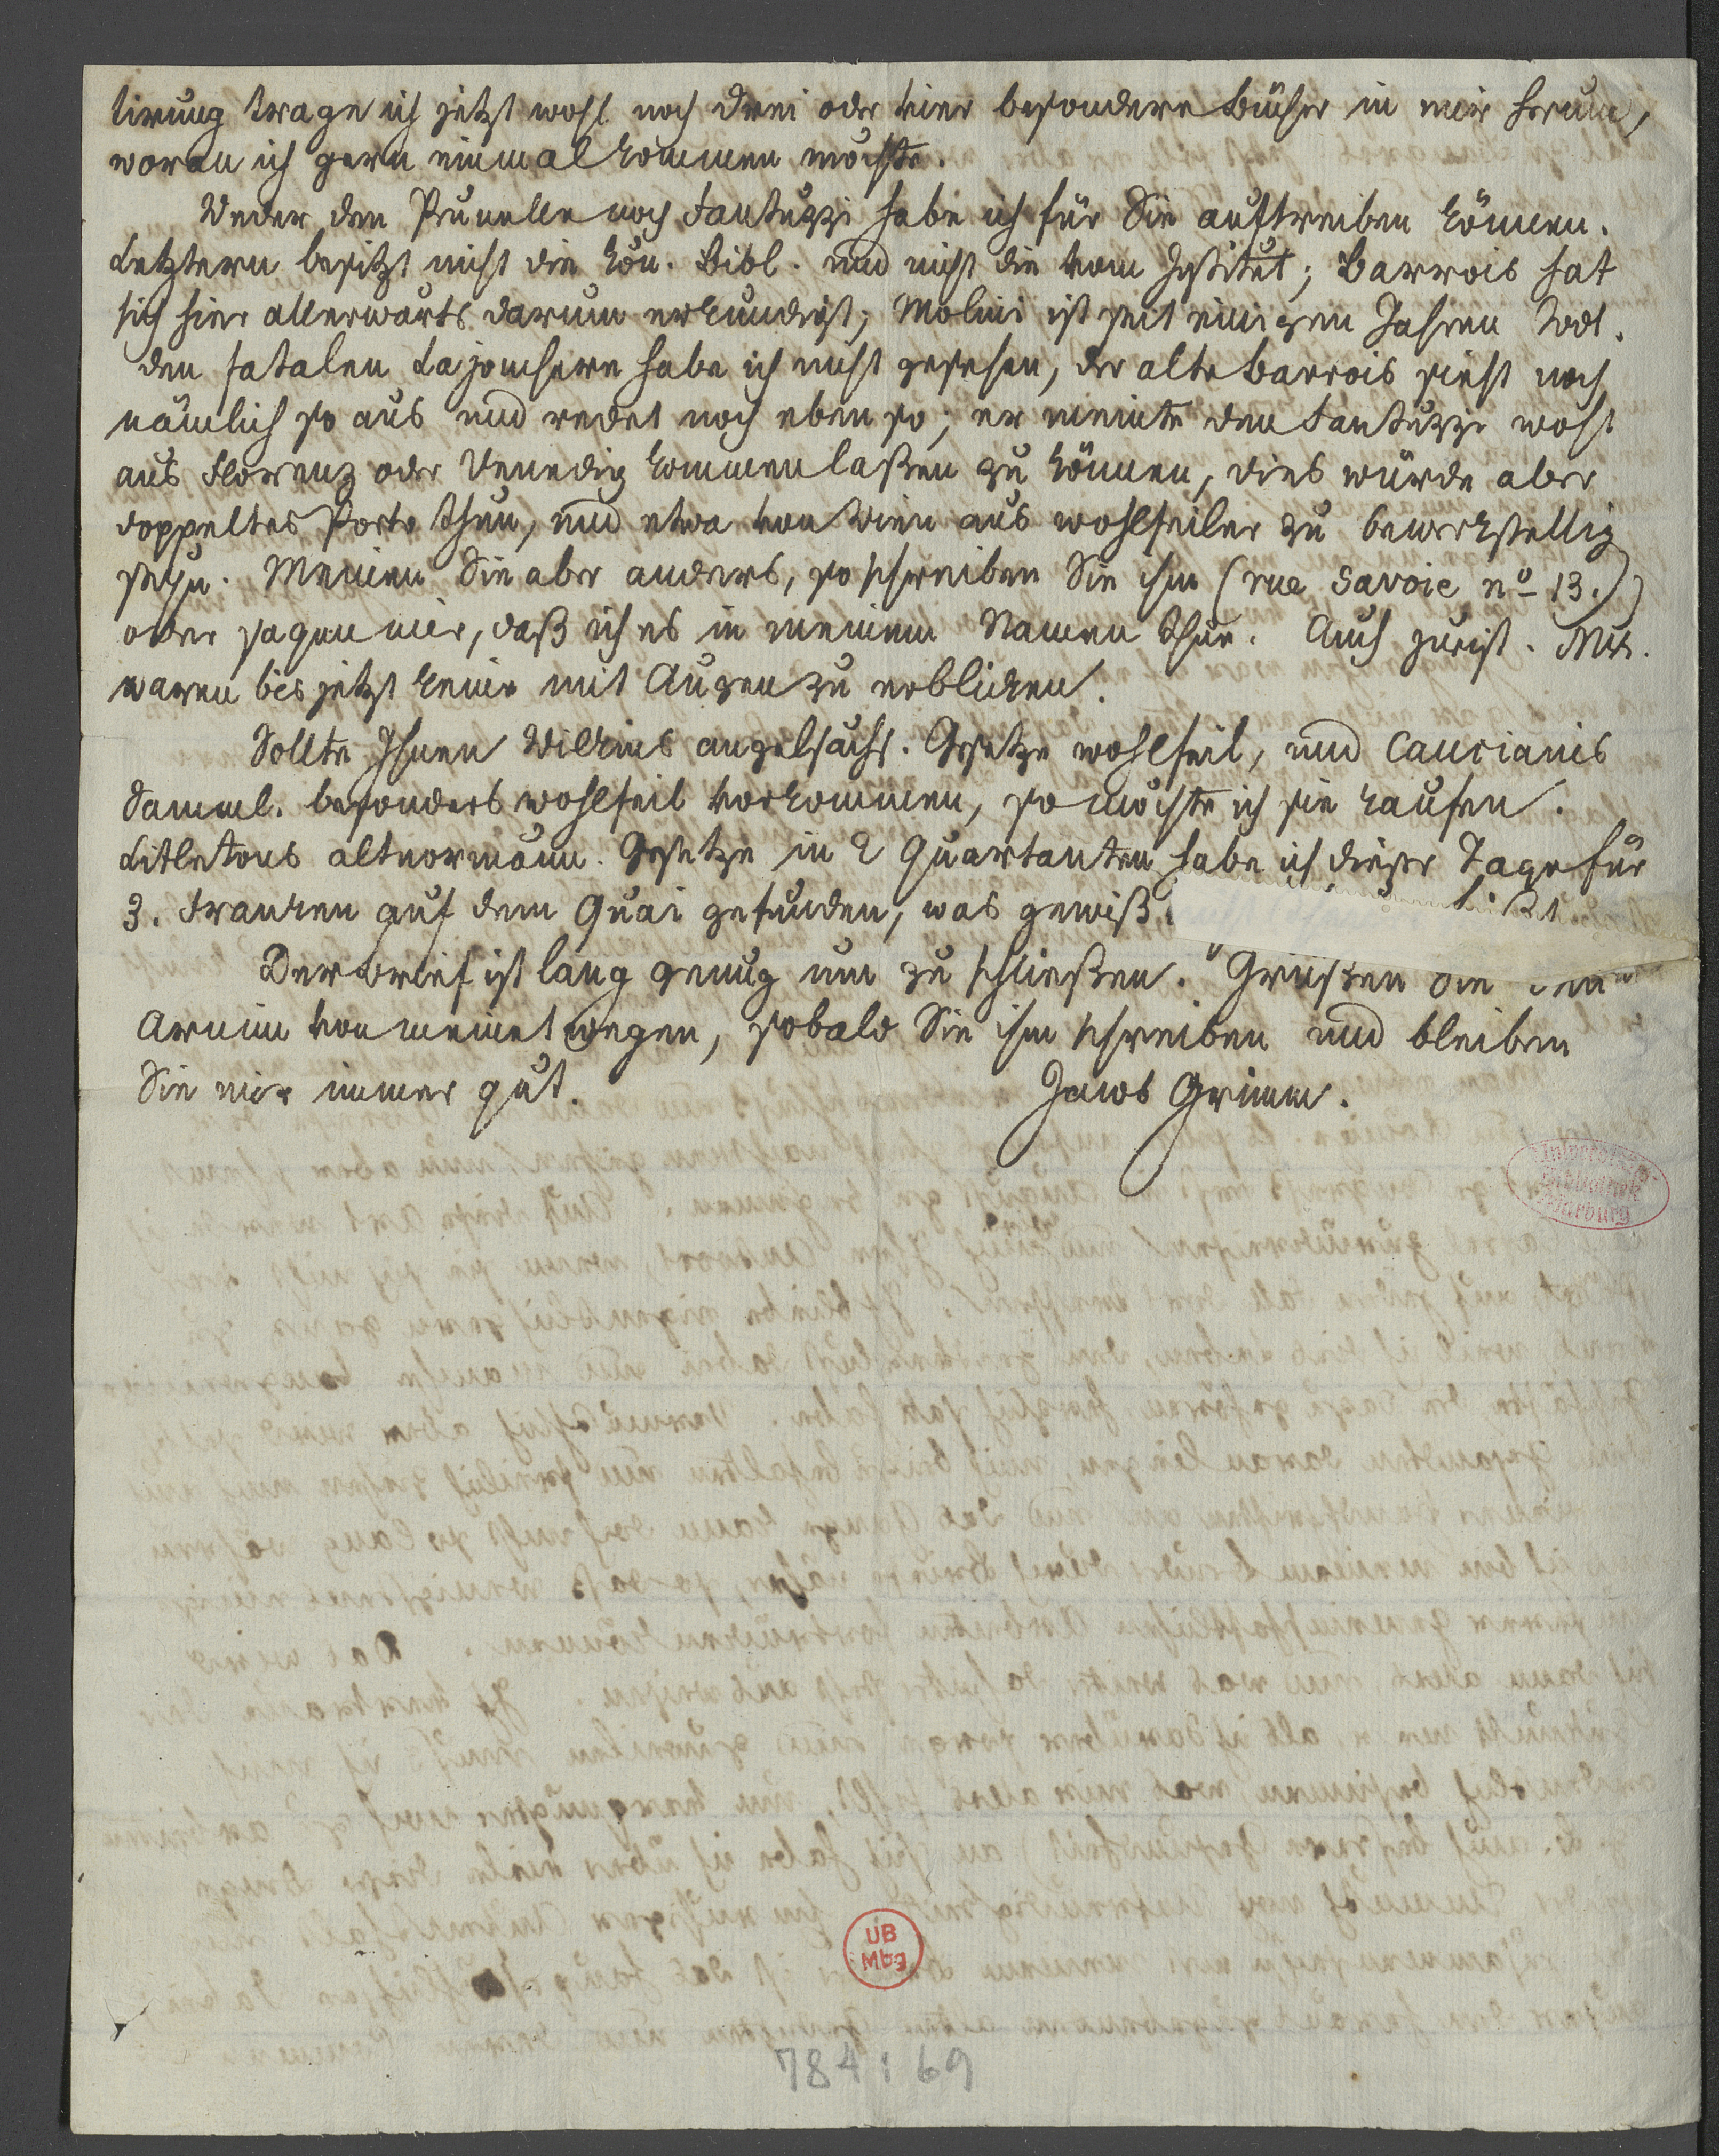 tirung trage ich jetzt wohl noch drei oder vier besondere Bücher in mir herum,
woran ich gern einmal kommen möchte.
Weder den Prunelle noch Fantuzzi habe ich für Sie auftreiben können.
Letztern besitzt nicht die kön. Bibl. und nicht die vom Institut; Barrois hat
sich hier allerwärts darum erkundigt; Molini ist seit einigen Jahren todt.
den fatalen Lajonchere habe ich nicht gesehen, der alte Barrois sieht noch
nämlich so aus und redet noch eben so; er meinte den Fantuzzi wohl
aus Florenz oder Venedig kommen laßen zu können, dies würde aber
doppeltes Porto thun, und etwa von Wien aus wohlfeiler zu bewerkstellig
seyn. Meinen Sie aber anders, so schreiben Sie ihm (rue Savoie nº 13.)
oder sagen mir, daß ich es in meinem Namen thue. Auch jurist. Mss.
waren bis jetzt keine mit Augen zu erblicken.
Sollte Ihnen Wilkins angelsächs. Gesetze wohlfeil, und Cancianis
Samml. besonders wohlfeil vorkommen, so möchte ich sie kaufen.
Litletons altnormänn. Gesetze in 2 Quartanten habe ich dieser Tage für
3. Franken auf dem Quai gefunden, was gewiß
Der Brief ist lang genug um zu schließen. Grüßen Sie den
Arnim von meinetwegen, sobald Sie ihm schreiben und bleiben
Sie mir immer gut. Jacob Grimm.
Universitäts-
Bibliothek
Marburg
UB
Mbg
784:69